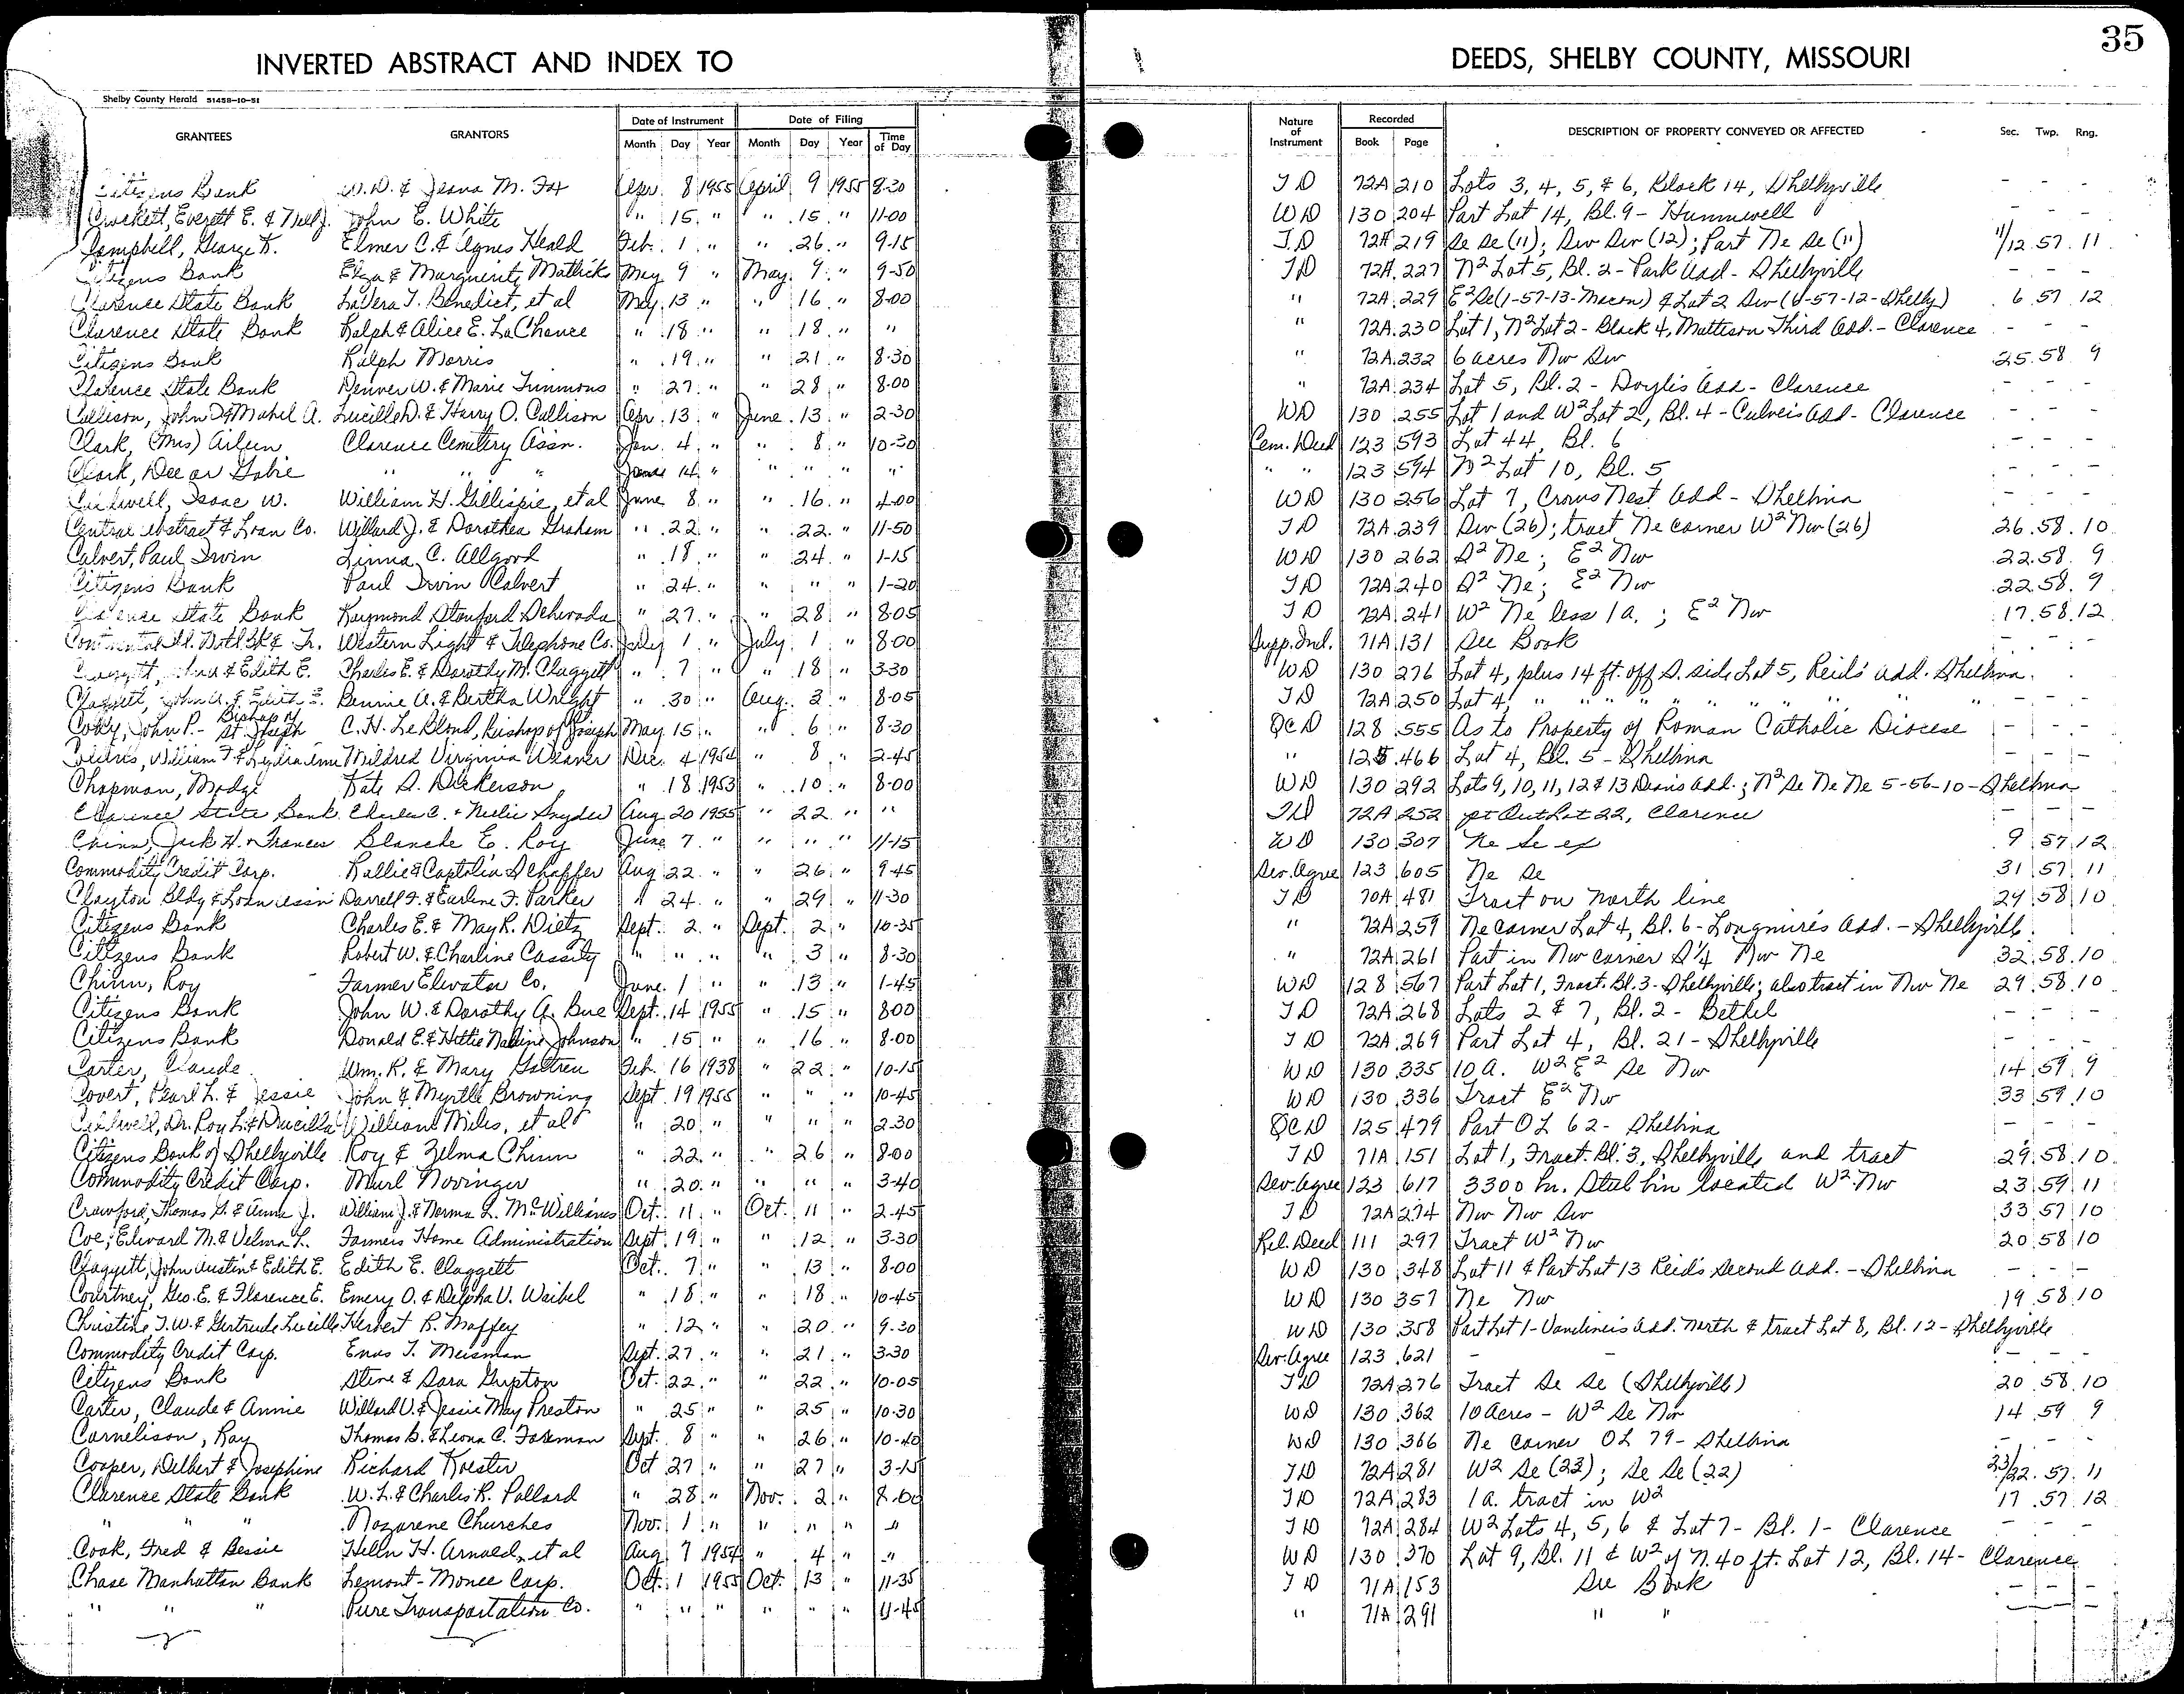 35
INVERTED ABSTRACT AND INDEX TO DEEDS, SHELBY COUNTY, MISSOURI
Shelby County Herald 51458-10-51
GRANTEES GRANTORS Date of Instrument Date of Filing Nature of Instrument Recorded DESCRIPTION OF PROPERTY CONVEYED OR AFFECTED Sec. Twp. Rng.
Month Day Year Month Day Year Time of Day Book Page
Citizens Bank W. D. & Jeana M. Fox Apr. 8 1955 April 9 1955 8-30 T D 72A 210 Lots 3, 4, 5, & 6, Block 14, Shelbyville - - -
Crockett, Everett E. & Nell J. John E. White " 15 " " 15 " 11-00 W D 130 204 Part Lot 14, Bl. 9 - Hunnewell - - -
Campbell, George K. Elmer C. & Agnes Heald Feb. 1 " " 26 " 9-15 T D 72A 219 Se Se (11); Sw Sw (12); Part Ne Se (11) 11/12 57 11
Citizens Bank Elza & Marguerite Matlick May 9 " May 9 " 9-50 T D 72A 227 N² Lot 5, Bl. 2 - Park Add - Shelbyville - - -
Clarence State Bank LaVera T. Benedict, et al May 13 " " 16 " 8-00 " 72A 229 E² Se (1-57-13-Macon) & Lot 2 Sw (6-57-12-Shelby) 6 57 12
Clarence State Bank Ralph & Alice E. LaChance " 18 " " 18 " " " 72A 230 Lot 1, N² Lot 2 - Block 4, Mattison Third Add. - Clarence - - -
Citizens Bank Ralph Morris " 19 " " 21 " 8-30 " 72A 232 6 acres Nw Sw 25 58 9
Clarence State Bank Denver W. & Marie Timmons " 27 " " 28 " 8-00 " 72A 234 Lot 5, Bl. 2 - Doyles Add - Clarence - - -
Collison, John D & Mabel A. Lucille D. & Harry O. Collison Apr. 13 " June 13 " 2-30 W D 130 255 Lot 1 and W² Lot 2, Bl. 4 - Culvers Add - Clarence - - -
Clark, (Mrs) Aileen Clarence Cemetery Assn. Jan. 4 " " 8 " 10-30 Cem. Deed 123 593 Lot 44, Bl. 6 - - -
Clark, Dee or Gabie " " " June 14 " " " " " " " 123 594 N² Lot 10, Bl. 5 - - -
Isaac W. William H. Gillispie, et al June 8 " " 16 " 4-00 W D 130 256 Lot 7, Crows Nest Add - Shelbina - - -
Central Abstract & Loan Co. Willard J. & Dorothea Graham " 22 " " 22 " 11-50 T D 72A 239 Sw (26); tract Ne corner W² Nw (26) 26 58 10
Calvert, Paul Irvin Linna C. Allgood " 18 " " 24 " 1-15 W D 130 262 S² Ne; E² Nw 22 58 9
Citizens Bank Paul Irvin Calvert " 24 " " " " 1-20 T D 72A 240 S² Ne; E² Nw 22 58 9
Clarence State Bank Raymond Stanford Schwada " 27 " " 28 " 8-05 T D 72A 241 W² Ne less 1 a. ; E² Nw 17 58 12
Continental Ill. Natl. Bk & Tr. Western Light & Telephone Co. July 1 " July 1 " 8-00 Supp. Ind. 71A 131 See Book - - -
Claggett, John & Edith E. Charles E. & Dorothy M. Claggett " 7 " " 18 " 3-30 W D 130 276 Lot 4, plus 14 ft. off S. side Lot 5, Reid's Add. Shelbina - - -
Claggett, John A. & Edith E. Bennie A. & Bertha Wright " 30 " Aug. 2 " 8-05 T D 72A 250 Lot 4, " " " " " " " " " - - -
Cody, John P. - Bishop of St. Joseph C. H. LeBlond, Bishop of St. Joseph May 15 " " 6 " 8-30 QCD 128 555 As to Property of Roman Catholic Diocese - - -
William F. & Lydia Anne Mildred Virginia Weaver Dec. 4 1954 " 8 " 2-45 " 125 466 Lot 4, Bl. 5 - Shelbina - - -
Chapman, Madge Kate S. Dickerson " 18 1953 " 10 " 8-00 W D 130 292 Lots 9, 10, 11, 12 & 13 Deans Add.; N² Se Ne Ne 5-56-10 - Shelbina
Clarence State Bank Charles C. & Nellie Snyder Aug 20 1955 " 22 " " T D 72A 252 pt Out Lot 22, Clarence - - -
Chinn, Jack H. & Frances Blanche E. Roy June 7 " " " " 11-15 W D 130 307 Ne Se ex 9 57 12
Commodity Credit Corp. Rallie & Captolia Schaffer Aug 22 " " 26 " 9-45 Sev. Agree 123 605 Ne Se 31 57 11
Clayton Bldg & Loan Assn Darrell F. & Earlene F. Parker " 24 " " 29 " 11-30 T D 70A 481 Tract on north line 29 58 10
Citizens Bank Charles E. & May R. Dietz Sept. 2 " Sept. 2 " 10-35 " 72A 259 Ne corner Lot 4, Bl. 6 - Longmire's Add. - Shelbyville
Citizens Bank Robert W. & Charline Cassity " " " " 3 " 8-30 " 72A 261 Part in Nw corner S¼ Nw Ne 32 58 10
Chinn, Roy Farmer Elevator Co. June 1 " " 13 " 1-45 W D 128 567 Part Lot 1, Fract. Bl. 3 - Shelbyville; also tract in Nw Ne 29 58 10
Citizens Bank John W. & Dorothy A. Bue Sept. 14 1955 " 15 " 8-00 T D 72A 268 Lots 2 & 7, Bl. 2 - Bethel - - -
Citizens Bank Donald E. & Hettie Nadine Johnson " 15 " " 16 " 8-00 T D 72A 269 Part Lot 4, Bl. 21 - Shelbyville - - -
Carter, Claude Wm. R. & Mary Feb. 16 1938 " 22 " 10-15 W D 130 335 10 a. W² E² Se Nw 14 59 9
Covert, Pearl L. & Jessie John & Myrtle Browning Sept 19 1955 " " " 10-45 W D 130 336 Tract E² Nw 33 59 10
Dr. Roy L. & Drucilla William Miles, et al " 20 " " " " 2-30 QCD 125 479 Part O L 62 - Shelbina - - -
Citizens Bank of Shelbyville Roy & Zelma Chinn " 22 " " 26 " 8-00 T D 71A 151 Lot 1, Fract. Bl. 3, Shelbyville and tract 29 58 10
Commodity Credit Corp. Murl Novinger " 20 " " " " 3-40 Sev. Agree 123 617 3300 bu. Steel bin located W² Nw 23 59 11
Crawford, Thomas G. & Anna J. William J. & Norma L. McWilliams Oct. 11 " Oct. 11 " 2-45 T D 72A 274 Nw Nw Sw 33 57 10
Coe, Edward M. & Velma L. Farmers Home Administration Sept. 19 " " 12 " 3-30 Rel. Deed 111 297 Tract W² Nw 20 58 10
Claggett, John Austin & Edith E. Edith E. Claggett Oct. 7 " " 13 " 8-00 W D 130 348 Lot 11 & Part Lot 13 Reid's Second Add. - Shelbina - - -
Courtney, Geo. E. & Florence E. Emery O. & Delpha V. Waibel " 18 " " 18 " 10-45 W D 130 357 Ne Nw 19 58 10
Christine, T. W. & Gertrude Lucille Herbert R. Maffey " 12 " " 20 " 9-30 W D 130 358 Part Lot 1 - Vandiver's Add. North & tract Lot 8, Bl. 12 - Shelbyville
Commodity Credit Corp. Enos T. Meisman Sept. 27 " " 21 " 3-30 Sev. Agree 123 621 - - - - -
Citizens Bank Stine & Sara Gupton Oct. 22 " " 22 " 10-05 T D 72A 276 Tract Se Se (Shelbyville) 20 58 10
Carter, Claude & Annie Willard V. & Jessie May Preston " 25 " " 25 " 10-30 W D 130 362 10 Acres - W² Se Nw 14 59 9
Cornelison, Ray Thomas G. & Leona C. Foreman Sept. 8 " " 26 " 10-40 W D 130 366 Ne corner O L 79 - Shelbina - - -
Cooper, Delbert & Josephine Richard Koester Oct 27 " " 27 " 3-15 T D 72A 281 W² Se (23); Se Se (22) 23/22 57 11
Clarence State Bank W. L. & Charles R. Pollard " 28 " Nov. 2 " 8-00 T D 72A 283 1 a. tract in W² 17 57 12
" " " Nazarene Churches Nov. 1 " " " " " T D 72A 284 W² Lots 4, 5, 6 & Lot 7 - Bl. 1 - Clarence - - -
Cook, Fred & Bessie Helen H. Arnold, et al Aug 7 1954 " 4 " " W D 130 370 Lot 9, Bl. 11 & W² of N. 40 ft. Lot 12, Bl. 14 - Clarence
Chase Manhattan Bank Lemont-Monee Corp. Oct. 1 1955 Oct. 13 " 11-35 T D 71A 153 See Book - - -
" " " Pure Transportation Co. " " " " " " 11-45 " 71A 291 " " - - -